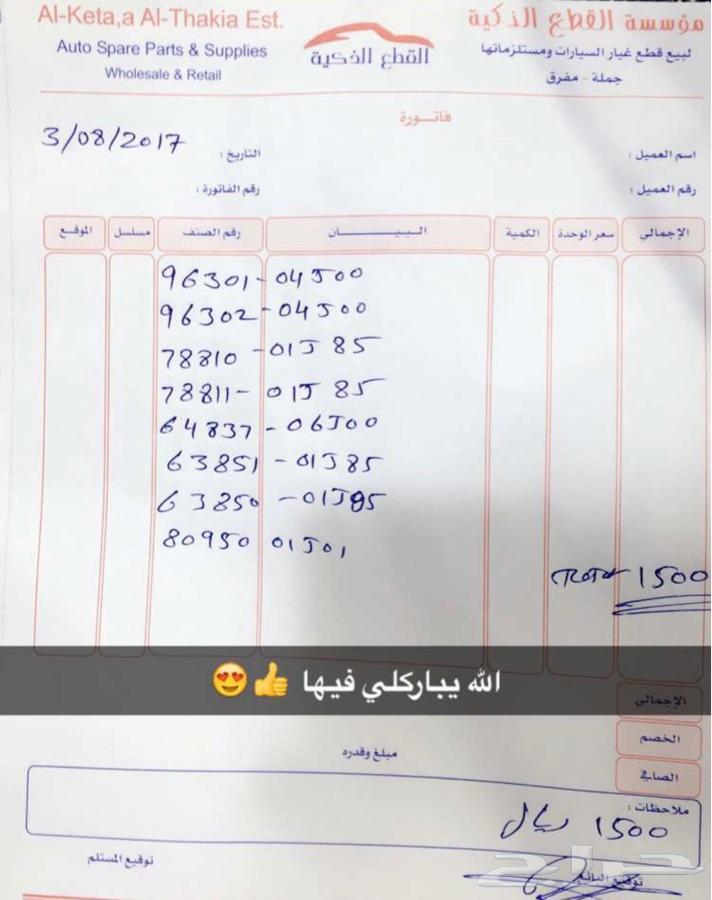 Al-Keta,a Al-Thakia Est.
مؤسسة القطع الذكية
Auto Spare Parts & Supplies
لبيع قطع غيار السيارات ومستلزماتها
Wholesale & Retail
جملة - مفرق
القطع الذكية
فاتـورة
اسم العميل :
التاريخ : 3/08/2017
رقم العميل :
رقم الفاتورة :
الإجمالي سعر الوحدة الكمية البيـــــان رقم الصنف مسلسل الموقع
96301-04J00
96302-04J00
78810-01J85
78811-01J85
64837-06J00
63851-01J85
63850-01J85
80950 01J01
1500
الله يباركلي فيها 👍😍
الإجمالي
الخصم
الصافي
مبلغ وقدره
ملاحظات :
1500 ريال
توقيع البائع
توقيع المستلم
حراج